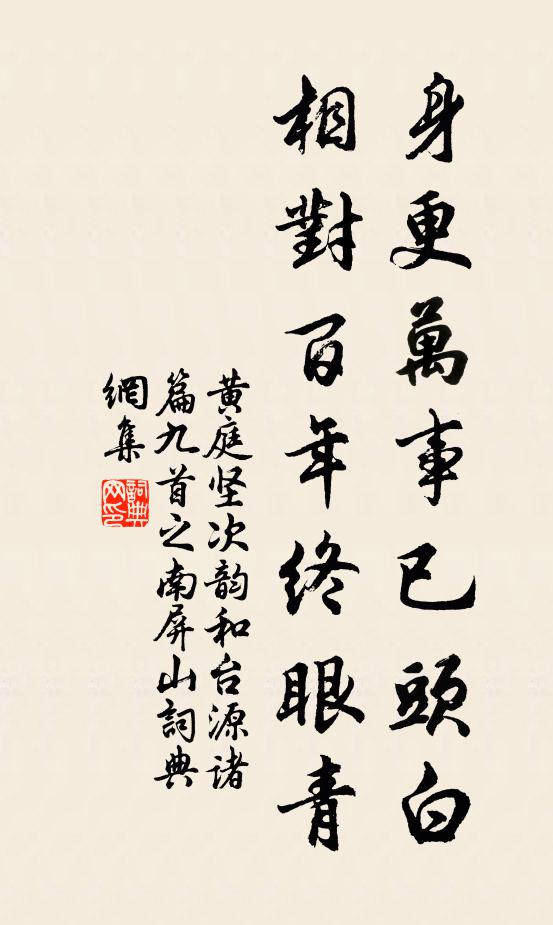 身更萬事已頭白
相對百年終眼青
黄庭坚次韵和台源诸
篇九首之南屏山詞典
網集
詞典
网印